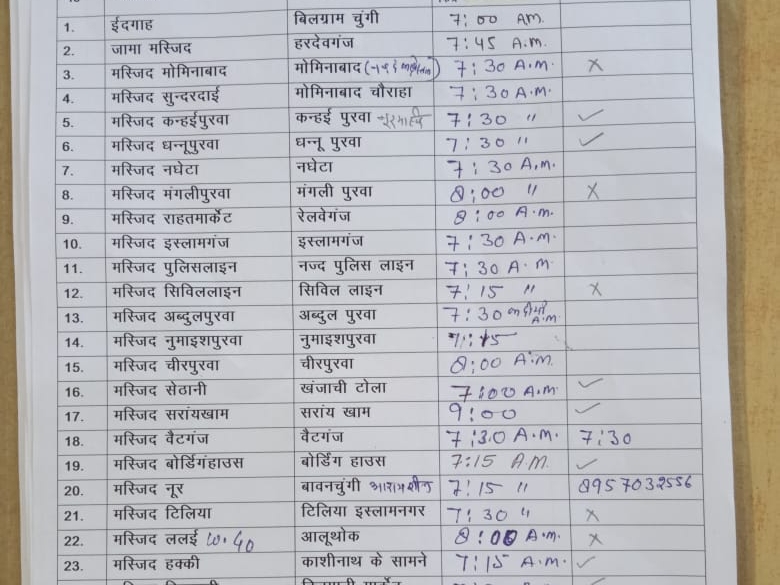 1. ईदगाह बिलग्राम चुंगी 7:00 AM.
2. जामा मस्जिद हरदेवगंज 7:45 A.M.
3. मस्जिद मोमिनाबाद मोमिनाबाद 7:30 A.M. ×
4. मस्जिद सुन्दरदाई मोमिनाबाद चौराहा 7:30 A.M.
5. मस्जिद कन्हईपुरवा कन्हई पुरवा 7:30 " ✓
6. मस्जिद धन्नूपुरवा धन्नू पुरवा 7:30 " ✓
7. मस्जिद नघेटा नघेटा 7:30 A.M.
8. मस्जिद मंगलीपुरवा मंगली पुरवा 8:00 " ×
9. मस्जिद राहतमार्केट रेलवेगंज 8:00 A.M.
10. मस्जिद इस्लामगंज इस्लामगंज 7:30 A.M.
11. मस्जिद पुलिसलाइन नज्द पुलिस लाइन 7:30 A.M.
12. मस्जिद सिविललाइन सिविल लाइन 7:15 " ×
13. मस्जिद अब्दुलपुरवा अब्दुल पुरवा 7:30 A.M.
14. मस्जिद नुमाइशपुरवा नुमाइशपुरवा 7:15
15. मस्जिद चीरपुरवा चीरपुरवा 8:00 A.M.
16. मस्जिद सेठानी खंजाची टोला 7:00 A.M. ✓
17. मस्जिद सरांयखाम सरांय खाम 9:00 ✓
18. मस्जिद वैटगंज वैटगंज 7:30 A.M. 7:30
19. मस्जिद बोर्डिगंहाउस बोर्डिंग हाउस 7:15 A.M. ✓
20. मस्जिद नूर बावनचुंगी 7:15 " 8957032556
21. मस्जिद टिलिया टिलिया इस्लामनगर 7:30 " ×
22. मस्जिद ललई आलूथोक 8:00 A.M. ×
23. मस्जिद हक्की काशीनाथ के सामने 7:15 A.M. ✓